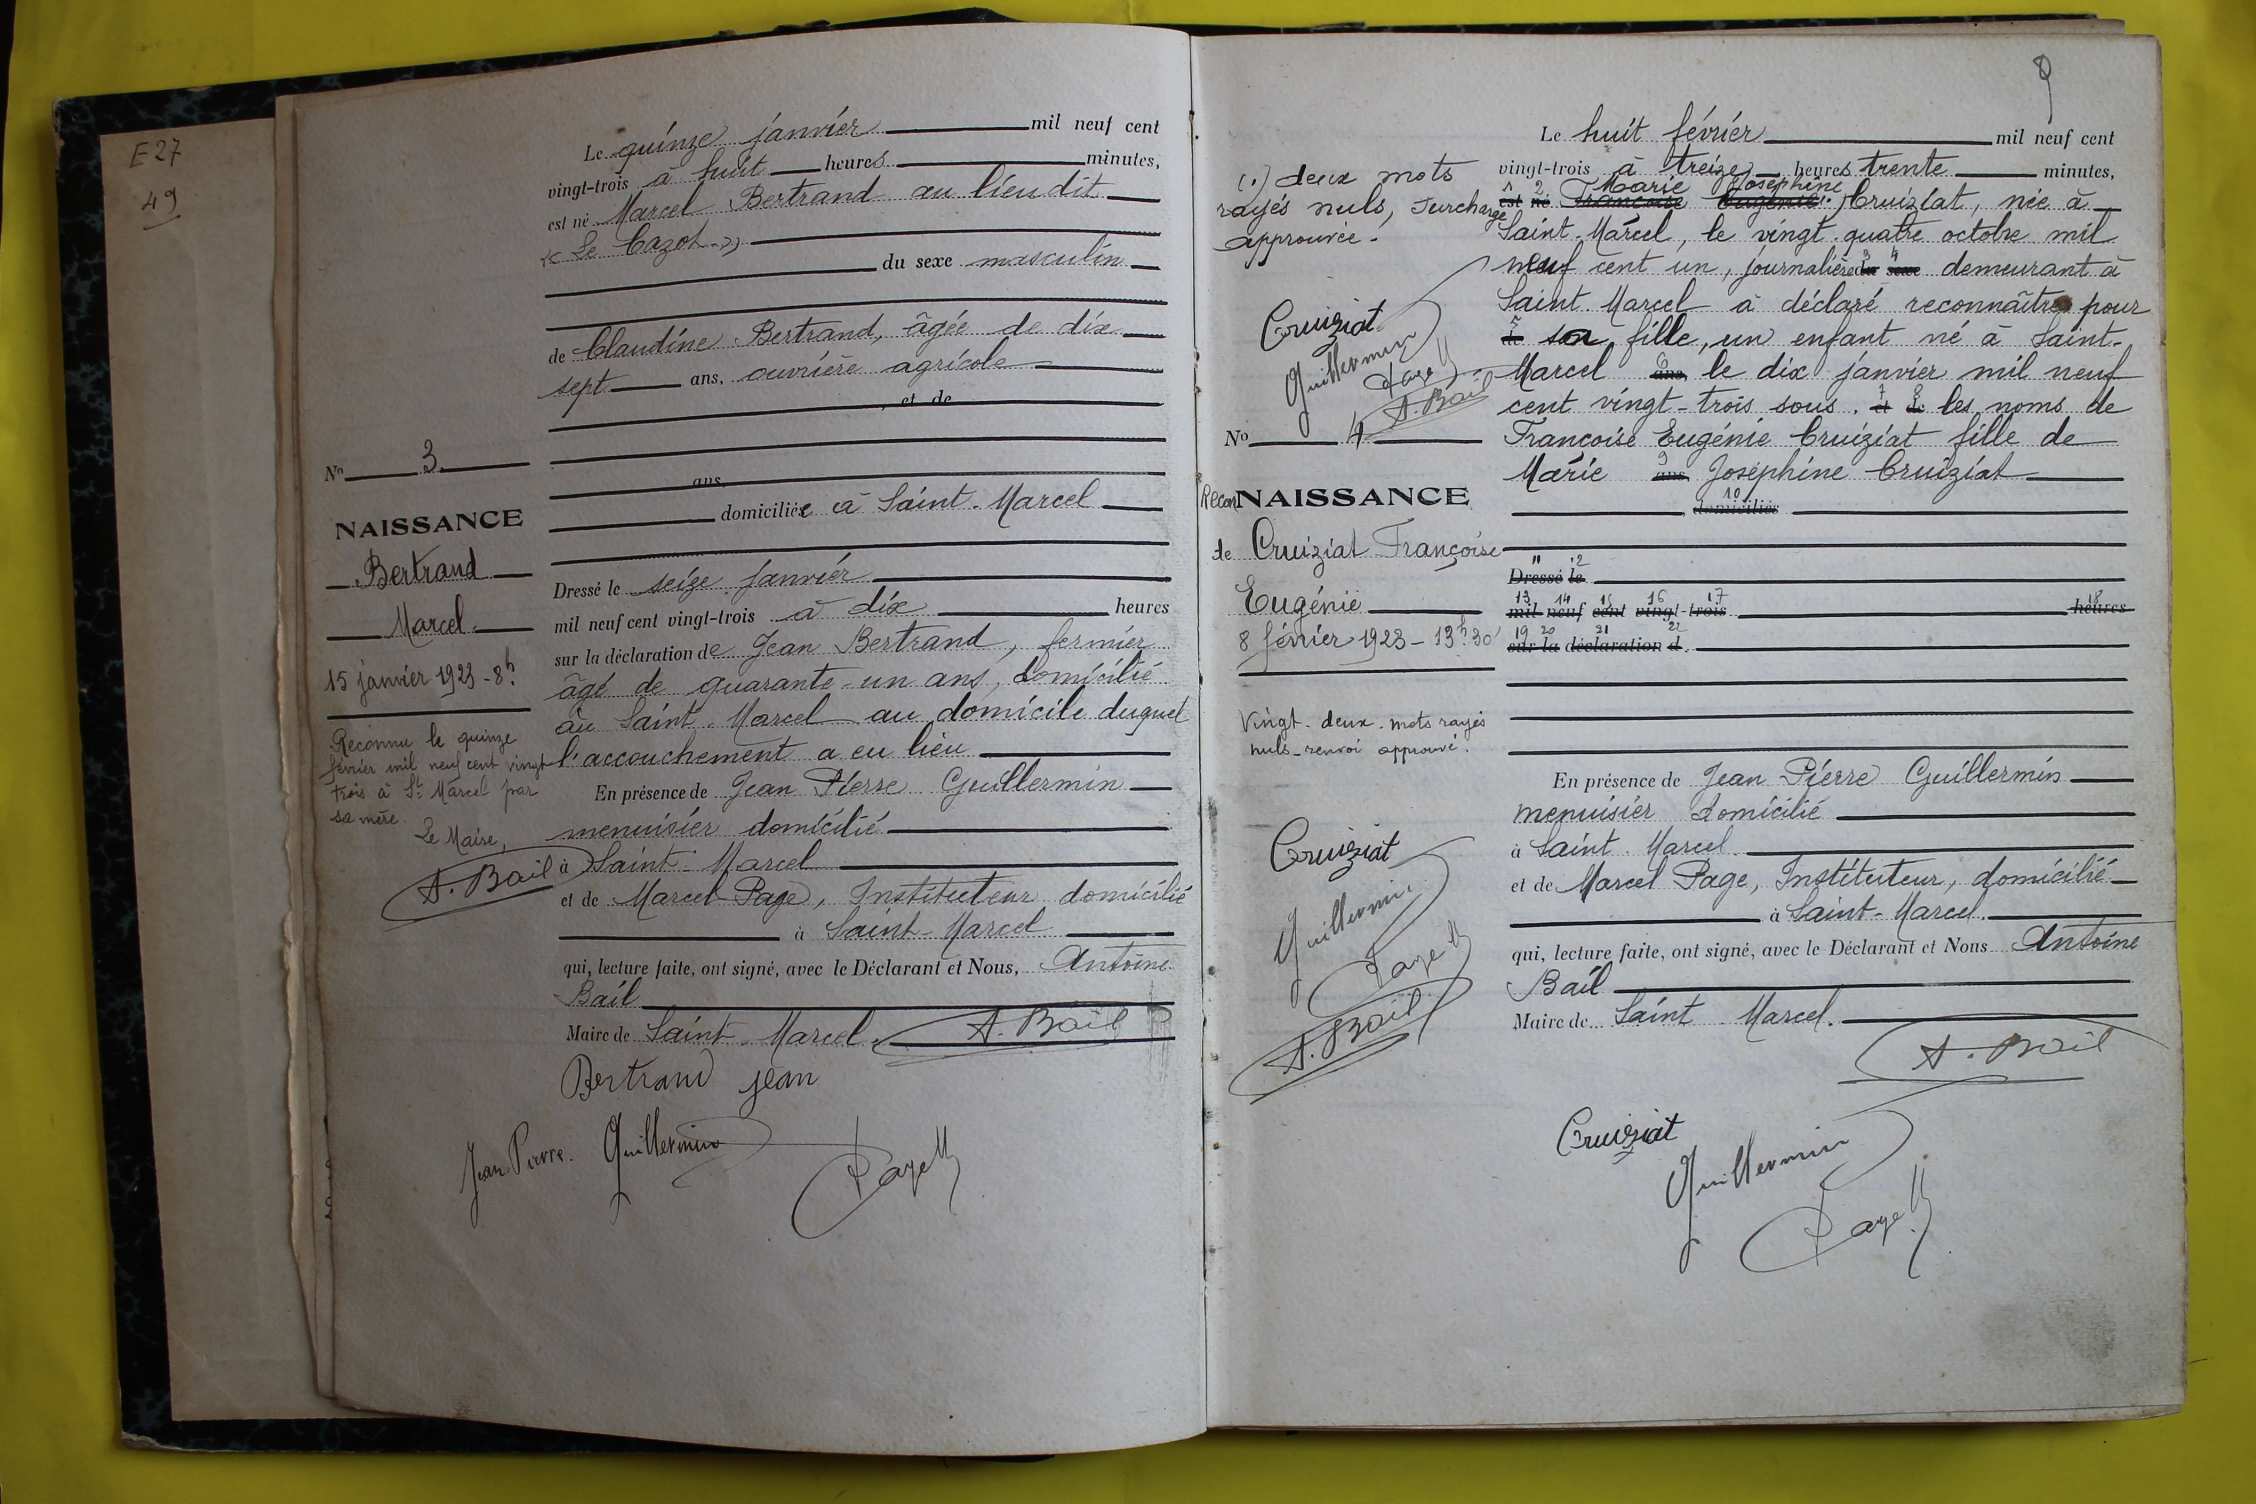 E27
49
Le quinze janvier mil neuf cent
vingt-trois à huit heures minutes,
est né Marcel Bertrand au lieu dit
« Le Cazot »
du sexe masculin
de Claudine Bertrand, âgée de dix
sept ans, ouvrière agricole
, et de
ans,
domiciliée à Saint-Marcel
Dressé le seize janvier
mil neuf cent vingt-trois à dix heures
sur la déclaration de Jean Bertrand, fermier
âgé de quarante-un ans, domicilié
au Saint-Marcel au domicile duquel
l'accouchement a eu lieu
En présence de Jean Pierre Guillermin
menuisier domicilié
à Saint-Marcel
et de Marcel Page, Instituteur domicilié
à Saint-Marcel
qui, lecture faite, ont signé, avec le Déclarant et Nous, Antoine
Bail
Maire de Saint-Marcel. A. Bail
Bertrand Jean
Jean Pierre. Guillermin
Page M
No 3
NAISSANCE
Bertrand
Marcel
15 janvier 1923 - 8h.
Reconnu le quinze
février mil neuf cent vingt
trois à St Marcel par
sa mère.
Le Maire,
A. Bail
9
Le huit février mil neuf cent
vingt-trois à treize heures trente minutes,
1 2 Marie Joséphine
est né Françoise Eugénie (.) Cruiziat, née à
Saint-Marcel, le vingt-quatre octobre mil
neuf cent un, journalière 3 du 4 sexe demeurant à
Saint-Marcel a déclaré reconnaître pour
5 de sa fille, un enfant né à Saint-
Marcel 6 ans, le dix janvier mil neuf
cent vingt-trois sous. 7 et 8 de les noms de
Françoise Eugénie Cruiziat fille de
Marie 9 ans, Joséphine Cruiziat
10 domiciliés
11 Dressé 12 le
13 mil 14 neuf 15 cent 16 vingt-17 trois 18 heures
19 sur 20 la 21 déclaration 22 d
En présence de Jean Pierre Guillermin
menuisier domicilié
à Saint-Marcel
et de Marcel Page, Instituteur, domicilié
à Saint-Marcel.
qui, lecture faite, ont signé, avec le Déclarant et Nous Antoine
Bail
Maire de Saint-Marcel.
A. Bail
Cruiziat
Guillermin
Page M
(.) deux mots
rayés nuls, surcharge
approuvée.
Cruiziat
Guillermin
Page M
A. Bail
No 4
Recon NAISSANCE
de Cruiziat Françoise
Eugénie
8 février 1923 - 13h.30'
Vingt-deux mots rayés
nuls - renvoi approuvé.
Cruiziat
Guillermin
Page M
A. Bail